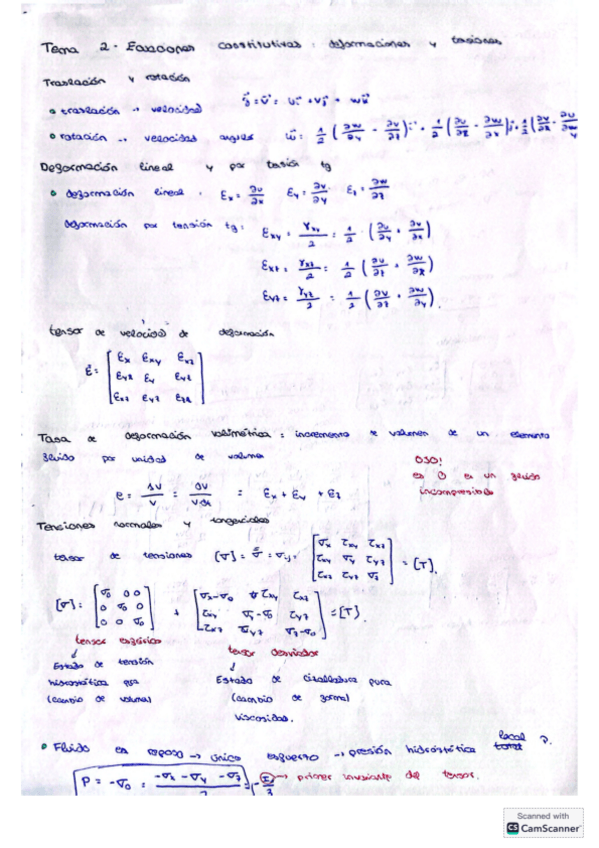 Tema 2. Ecuaciones constitutivas: deformaciones y tensiones
Traslación y rotación
traslación → velocidad
rotación → velocidad angular
Deformación lineal y por tensión tg
deformación lineal: Ex = ∂u/∂x Ey = ∂v/∂y Ez = ∂w/∂z
deformación por tensión tg: Exy = γxy/2 = 1/2 · (∂u/∂y + ∂v/∂x)
Exz = γxz/2 = 1/2 (∂u/∂z + ∂w/∂x)
Eyz = γyz/2 = 1/2 (∂v/∂z + ∂w/∂y).
tensor de velocidad de deformación
Tasa de deformación volumétrica: incremento de volumen de un elemento
fluido por unidad de volumen
OJO!
es 0 en un fluido
incompresible
= Ex + Ey + Ez
Tensiones normales y tangenciales
tensor de tensiones
σx τxy τxz
τxy σy τyz
τxz τyz σz
= [T].
[σ]: σ0 0 0
0 σ0 0
0 0 σ0
+
= [T].
tensor esférico
tensor desviador
Estado de tensión
hidrostática
(cambio de volumen)
Estado de cizalladura pura
(cambio de forma)
viscosidad.
Fluido en reposo → único esfuerzo → presión hidrostática local P.
P = -σ0 = -σx - σy - σz
→ primer invariante del tensor.
Scanned with
CS CamScanner